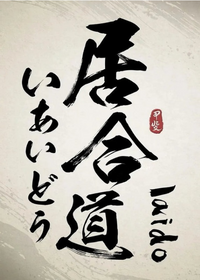 居合道
いあいどう
Iaido
甲斐